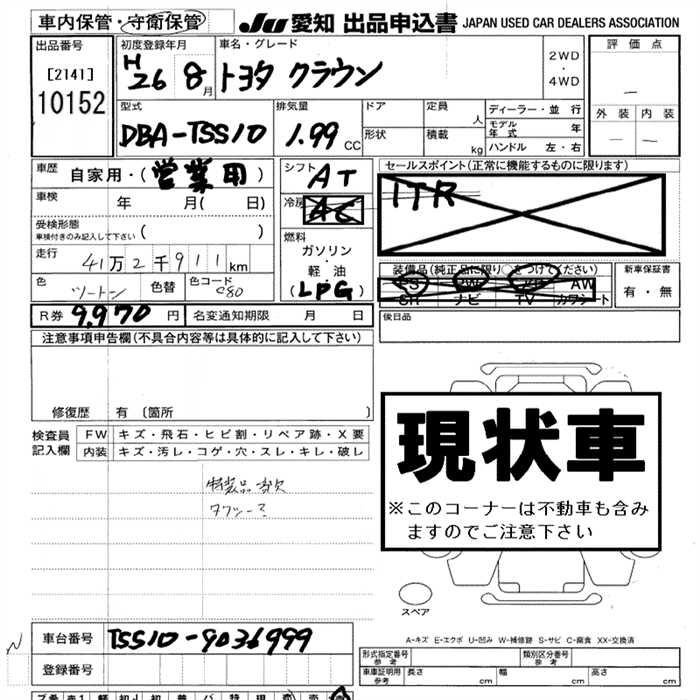 車内保管・守衛保管 JU 愛知 出品申込書 JAPAN USED CAR DEALERS ASSOCIATION
出品番号 初度登録年月 車名・グレード 評価点
[2141] H 26 8月 トヨタ クラウン 2WD・4WD
10152
型式 排気量 ドア 定員 人 ディーラー・並行 外装 内装
DBA-TSS10 1.99 CC 形状 積載 kg モデル年式 年
ハンドル 左・右
車歴 自家用・(営業用) シフト AT セールスポイント(正常に機能するものに限ります)
車検 年 月( 日) 冷房 AC ITR
受検形態
車検付きのみ記入して下さい ( ) 燃料
走行 41万2千911km ガソリン・軽油
(LPG)
装備品(純正品に限り○をつけてください) 新車保証書
色 ツートン 色替 色コード 080 SS PW AW 有・無
SR ナビ TV カワシート
R券 9,970円 名変通知期限 月 日 後日品
注意事項申告欄(不具合内容等は具体的に記入して下さい)
修復歴 有〔箇所 〕
現状車
※このコーナーは不動車も含み
ますのでご注意下さい
検査員 FW キズ・飛石・ヒビ割・リペア跡・X要
記入欄 内装 キズ・汚レ・コゲ・穴・スレ・キレ・破レ
スペア
A-キズ E-エクボ U-凹み W-補修跡 S-サビ C-腐食 XX-交換済
N 車台番号 TSS10-9036999
登録番号
形式指定番号 参考 類別区分番号 参考
車庫証明用 参考 長さ cm 幅 cm 高さ cm